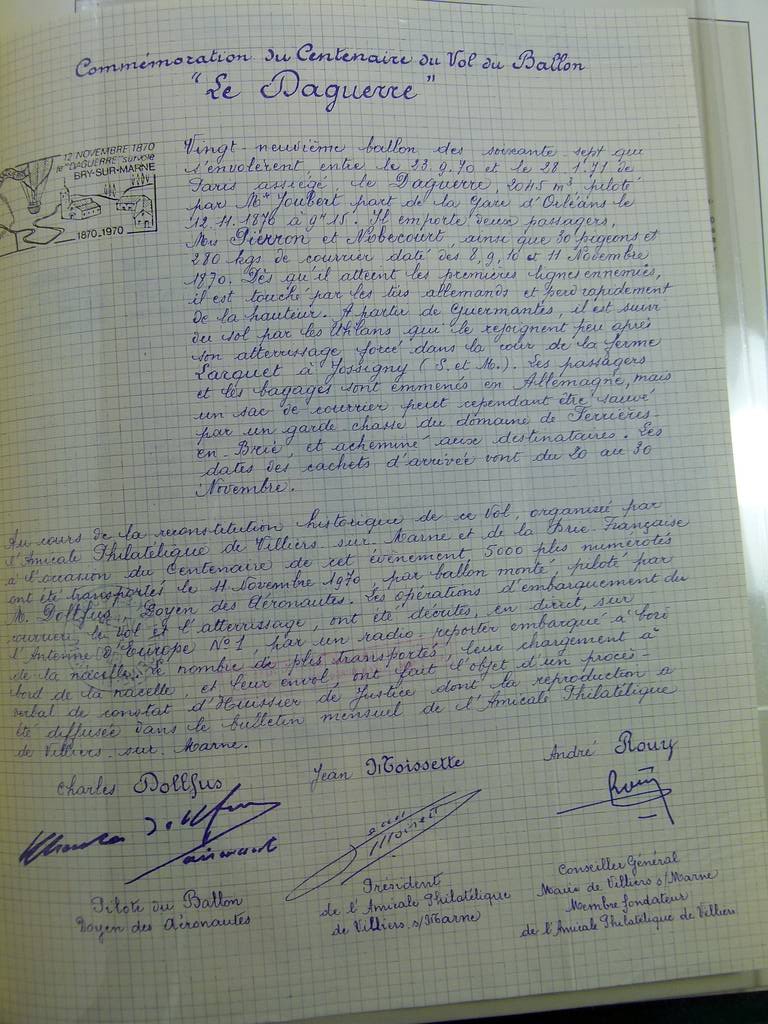 Commémoration du Centenaire du Vol du Ballon
"Le Daguerre"
12 NOVEMBRE 1870
le "DAGUERRE" survole
BRY-SUR-MARNE
1870_1970
Vingt-neuvième ballon des soixante-sept qui
s'envolèrent, entre le 23.9.70 et le 28.1.71 de
Paris assiégé, le Daguerre, 2045 m³, piloté
par Mr Joubert part de la Gare d'Orléans le
12.11.1870 à 9h15. Il emporte deux passagers,
Mrs Pierron et Nobecourt, ainsi que 30 pigeons et
280 kgs de courrier daté des 8, 9, 10 et 11 Novembre
1870. Dès qu'il atteint les premières lignes ennemies,
il est touché par les tirs allemands et perd rapidement
de la hauteur. A partir de Guermantes, il est suivi
du sol par les Uhlans qui le rejoignent peu après
son atterrissage forcé dans la cour de la ferme
Larguet à Jossigny (S. et M.). Les passagers
et les bagages sont emmenés en Allemagne, mais
un sac de courrier peut cependant être sauvé
par un garde chasse du domaine de Ferrières-
en-Brie, et acheminé aux destinataires. Les
dates des cachets d'arrivée vont du 20 au 30
Novembre.
Au cours de la reconstitution historique de ce Vol, organisée par
l'Amicale Philatélique de Villiers-sur-Marne et de la Brie-Française
à l'occasion du Centenaire de cet évènement, 5000 plis numérotés
ont été transportés le 11 Novembre 1970, par ballon monté, piloté par
M. Dollfus, Doyen des Aéronautes. Les opérations d'embarquement du
courrier, le vol et l'atterrissage, ont été décrites, en direct, sur
l'Antenne d'Europe N°1, par un radio-reporter embarqué à bord
de la nacelle. Le nombre de plis transportés, leur chargement à
bord de la nacelle, et leur envol, ont fait l'objet d'un procès-
verbal de constat d'Huissier de Justice dont la reproduction a
été diffusée dans le bulletin mensuel de l'Amicale Philatélique
de Villiers-sur-Marne.
Charles Dollfus
Jean Moissette
André Rouy
Charles Dollfus
Moissette
Rouy
Pilote du Ballon
Doyen des Aéronautes
Président
de l'Amicale Philatélique
de Villiers s/Marne
Conseiller Général
Maire de Villiers s/Marne
Membre fondateur
de l'Amicale Philatélique de Villiers